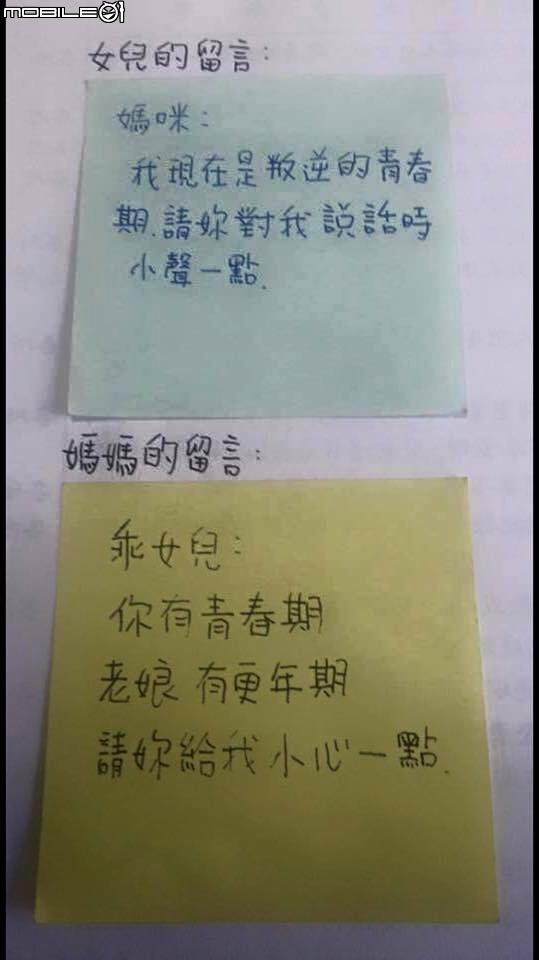 MOBILE01
女兒的留言:
媽咪:
我現在是叛逆的青春
期.請妳對我說話時
小聲一點.
媽媽的留言:
乖女兒:
你有青春期
老娘有更年期
請妳給我小心一點.